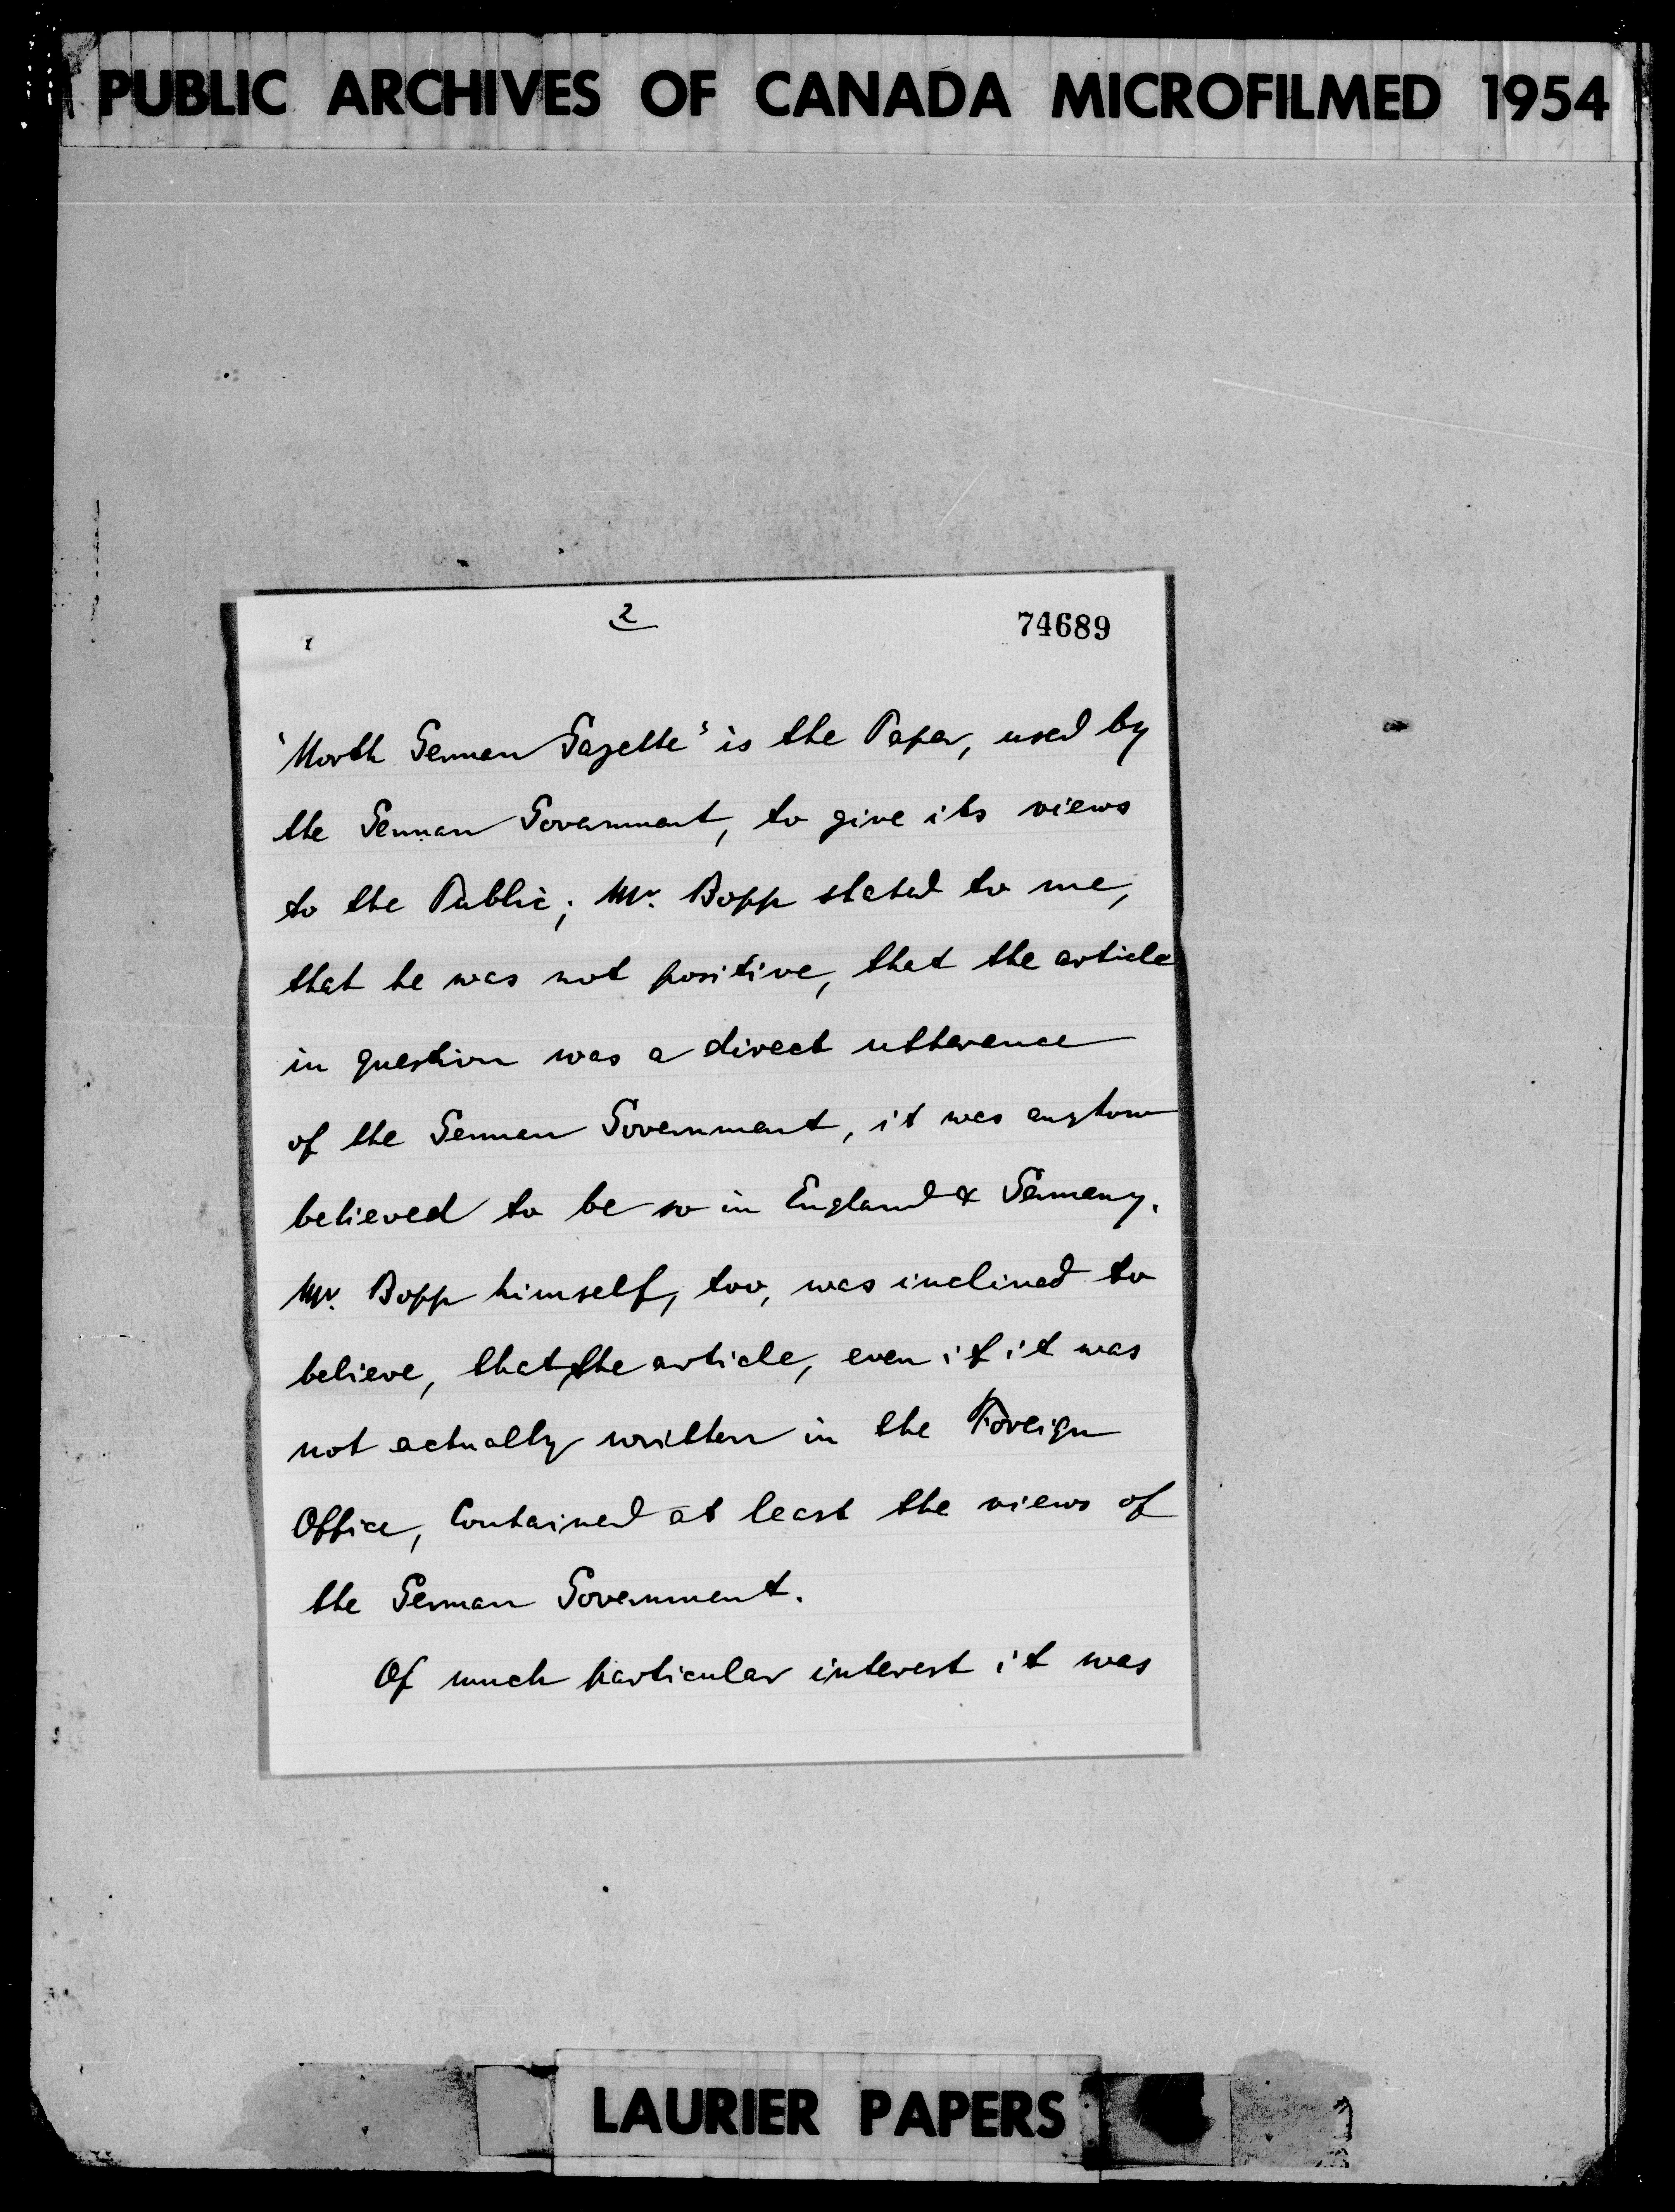 PUBLIC ARCHIVES OF CANADA MICROFILMED 1954
2
74689
'North German Gazette' is the Paper, used by
the German Government, to give its views
to the Public; Mr. Bopp stated to me,
that he was not positive, that the article
in question was a direct utterence
of the German Government, it was anyhow
believed to be so in England & Germany.
Mr. Bopp himself, too, was inclined to
believe, that, the article, even if it was
not actually written in the Foreign
Office, Contained at least the views of
the German Government.
Of much particular interest it was
LAURIER PAPERS